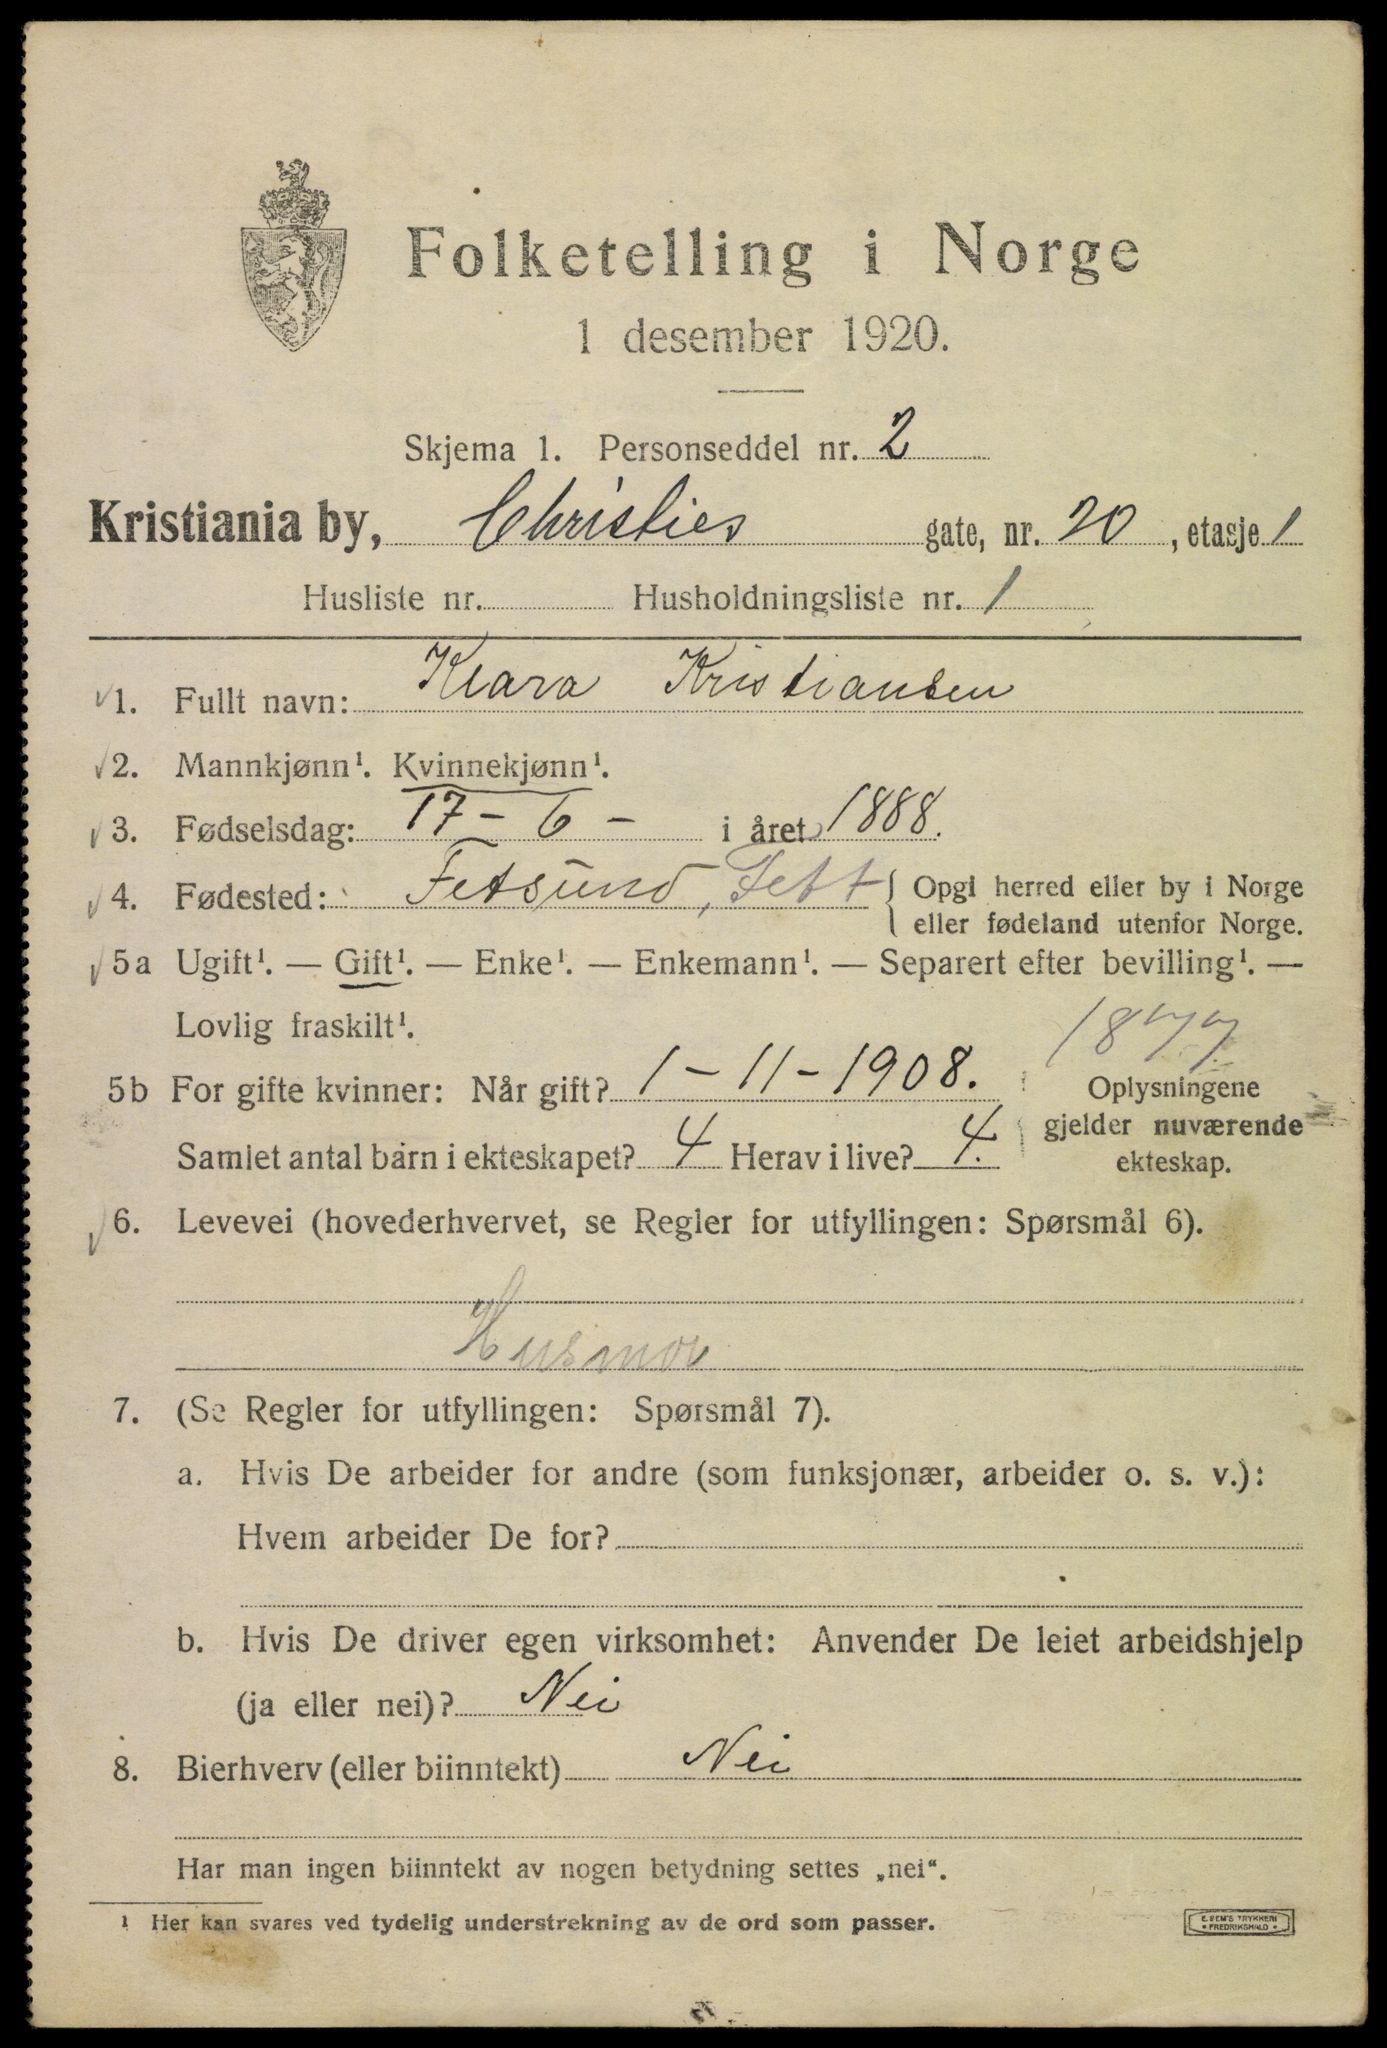 Folketelling i Norge
1 desember 1920.
Skjema 1. Personseddel nr. 2
Kristiania by, Christies gate, nr. 20, etasje 1
Husliste nr. Husholdningsliste nr. 1
1. Fullt navn: Klara Kristiansen
2. Mannkjønn¹. Kvinnekjønn¹.
3. Fødselsdag: 17 - 6 - i året 1888.
4. Fødested: Fetsund, Fett { Opgi herred eller by i Norge
eller fødeland utenfor Norge.
5a Ugift¹. — Gift¹. — Enke¹. — Enkemann¹. — Separert efter bevilling¹. —
Lovlig fraskilt¹.
1877
5b For gifte kvinner: Når gift? 1 - 11 - 1908. Oplysningene
gjelder nuværende
Samlet antal barn i ekteskapet? 4 Herav i live? 4. ekteskap.
6. Levevei (hovederhvervet, se Regler for utfyllingen: Spørsmål 6).
Husmor
7. (Se Regler for utfyllingen: Spørsmål 7).
a. Hvis De arbeider for andre (som funksjonær, arbeider o. s. v.):
Hvem arbeider De for?
b. Hvis De driver egen virksomhet: Anvender De leiet arbeidshjelp
(ja eller nei)? Nei
8. Bierhverv (eller biinntekt) Nei
Har man ingen biinntekt av nogen betydning settes „nei“.
¹ Her kan svares ved tydelig understrekning av de ord som passer.
E. SEM'S TRYKKERI
• FREDRIKSHALD •